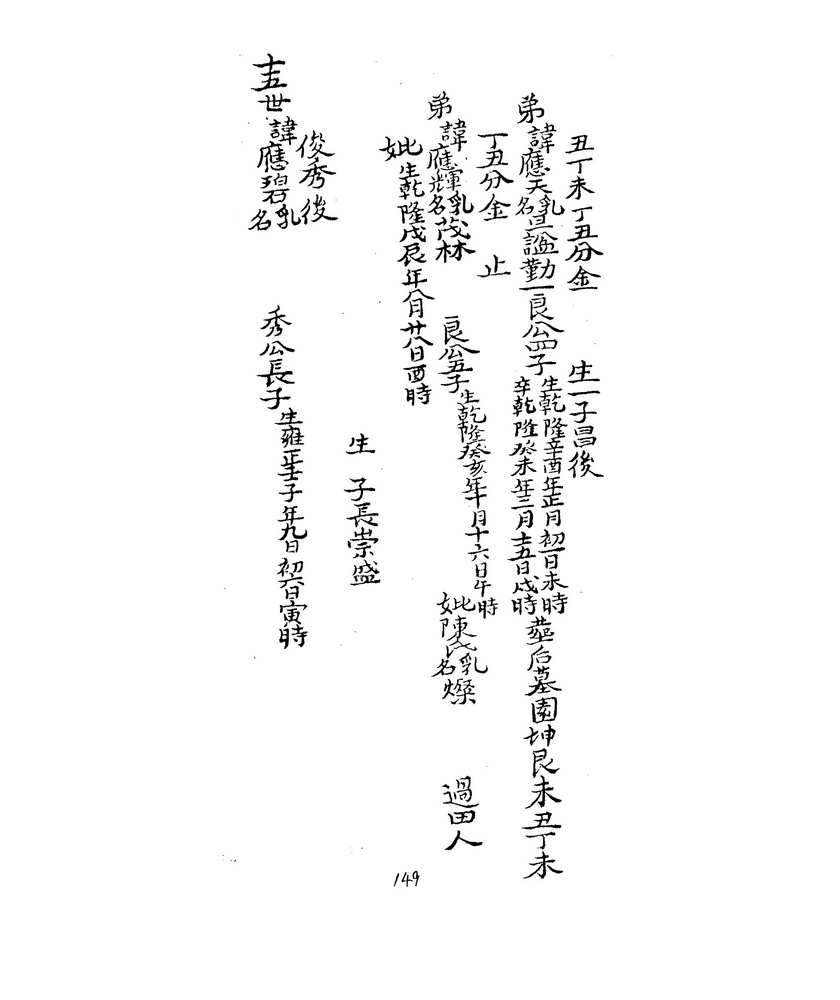 丑丁未丁丑分金　生一子昌後
弟諱應天乳名旦謚勤一良公四子生乾隆辛酉年正月初一日未時卒乾隆癸未年三月十五日戌時葬后墓園坤艮未丑丁未
丁丑分金　止
弟諱應輝乳名茂林　良公五子生乾隆癸亥年十月十六日午時妣陳氏乳名燦　過田人
妣生乾隆戊辰年八月廿八日酉時
生　子長崇盛
俊秀後
十五世諱應碧乳名　秀公長子生雍正壬子年九日初六日寅時
149